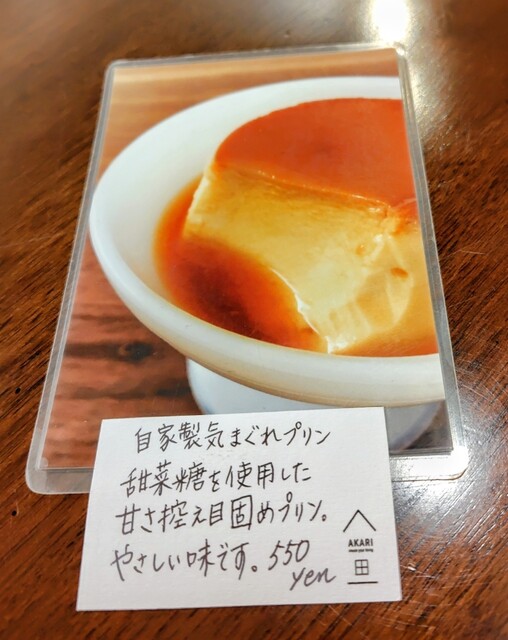 自家製気まぐれプリン
甜菜糖を使用した
甘さ控え目固めプリン。
やさしい味です。550
yen
AKARI